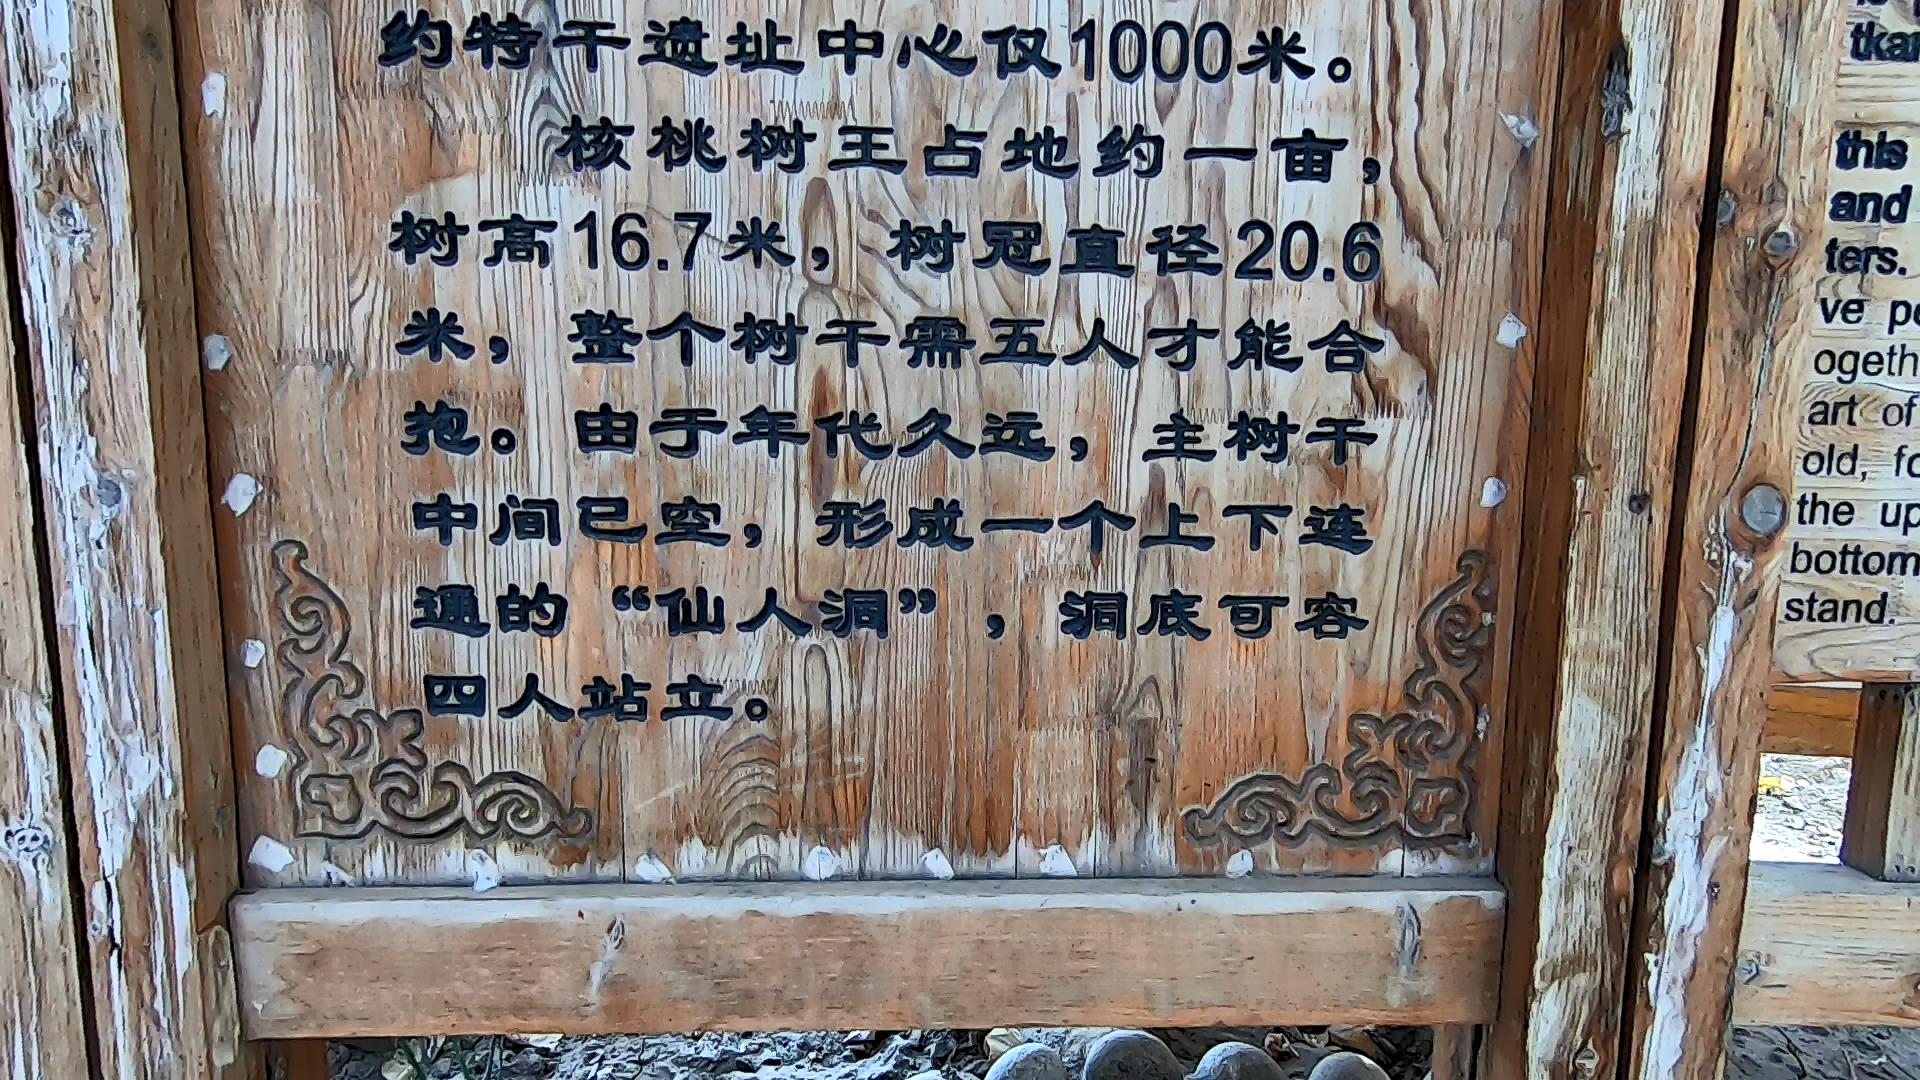 约特干遗址中心仅1000米。
核桃树王占地约一亩，
树高16.7米，树冠直径20.6
米，整个树干需五人才能合
抱。由于年代久远，主树干
中间已空，形成一个上下连
通的“仙人洞”，洞底可容
四人站立。
this
and
ters.
ve
art of
old,
the
bottom
stand.